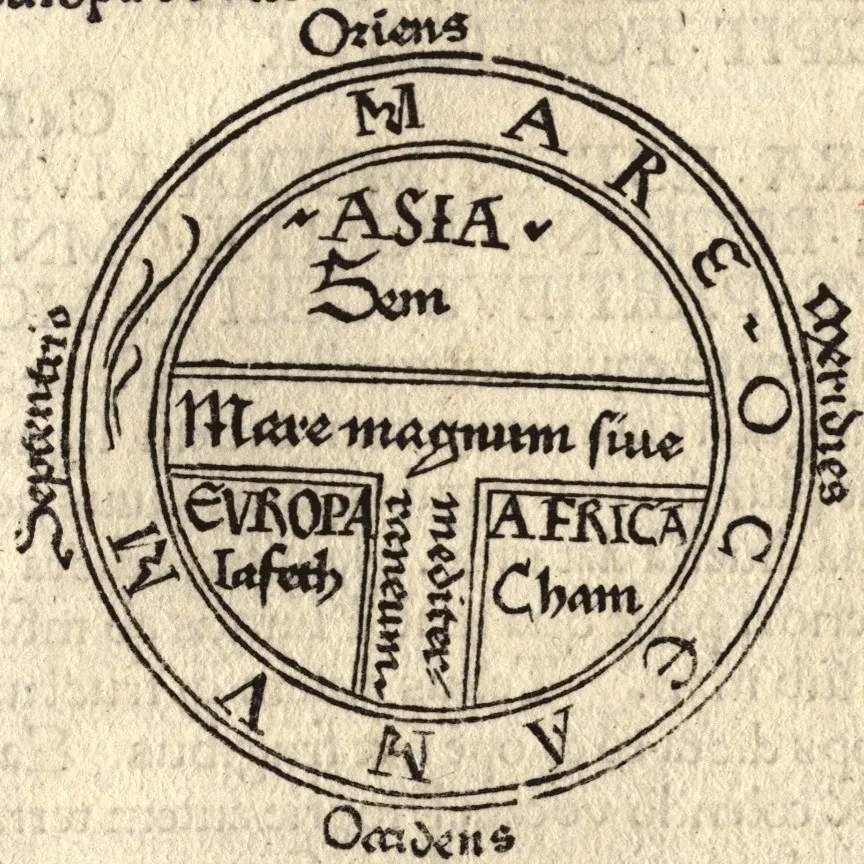 Oriens
MARE OCEANVM
ASIA
Sem
Septentrio
Meridies
Mare magnum siue
mediter
raneum
EVROPA
Iafeth
AFRICA
Cham
Occidens